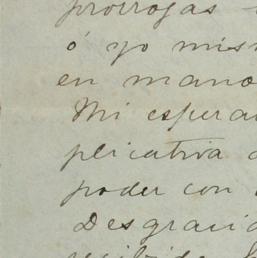 prorrogas
ó yo mis
en mano
Mi espera
plicativa
poder con
Desgracia
recibido